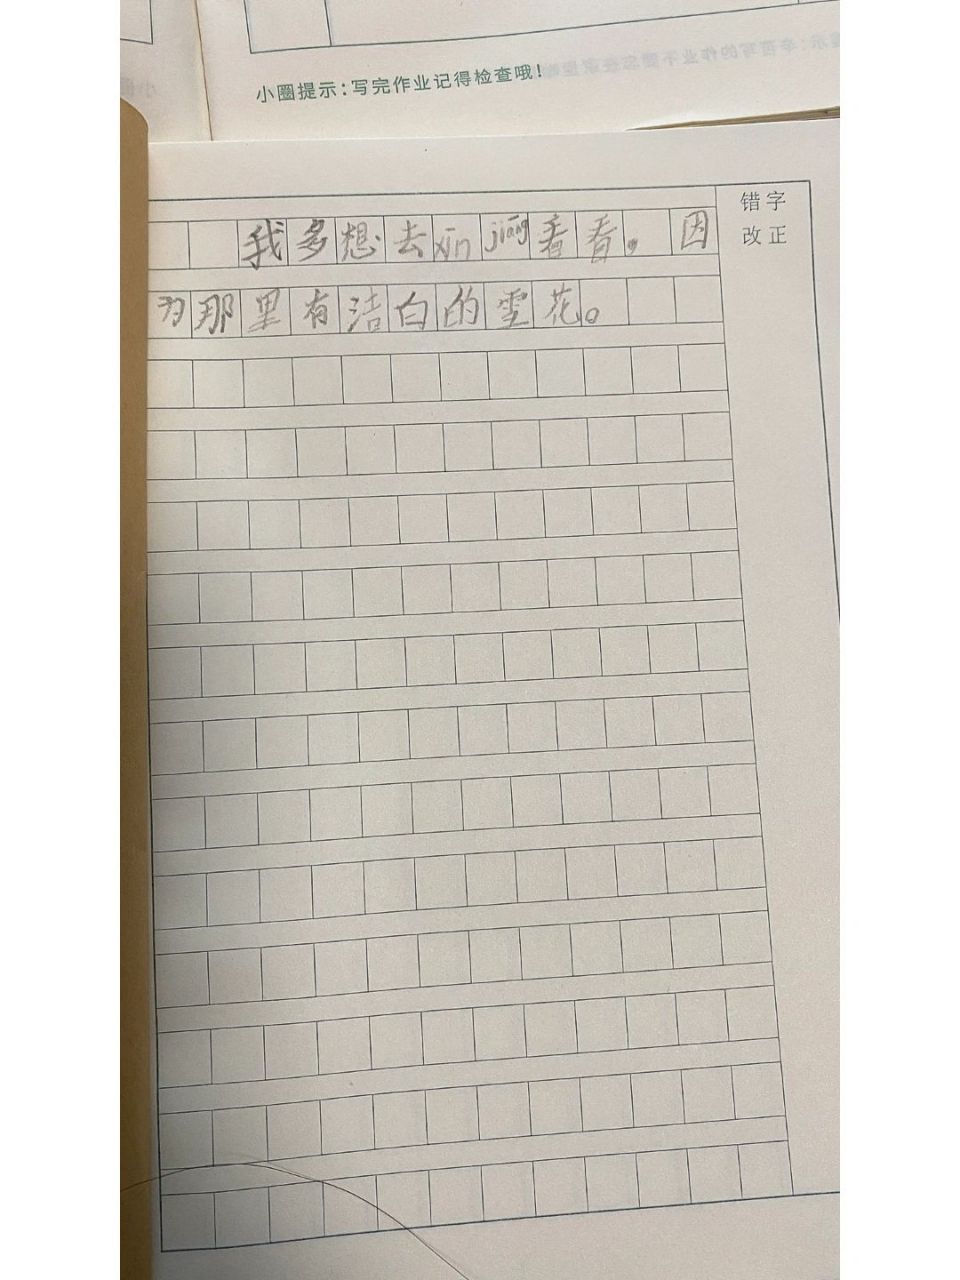 小圈提示：写完作业记得检查哦！
错字
改正
我多想去xīn jiāng看看。因
为那里有洁白的雪花。